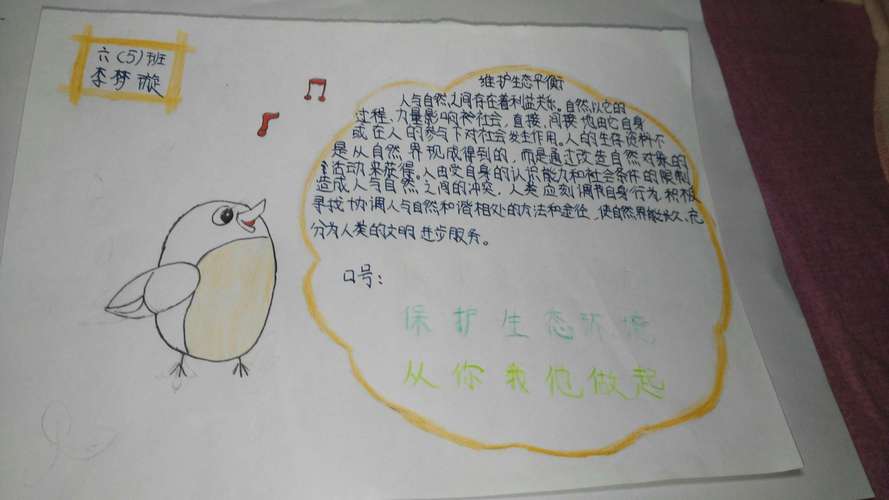 六(5)班
李梦璇
维护生态平衡
人与自然之间存在着利益关系。自然以它的
过程、力量影响着社会,直接、间接地由它自身
或在人的参与下对社会发生作用。人的生存资料不
是从自然界现成得到的,而是通过改造自然对象的
活动来获得。人由受自身的认识能力和社会条件的限制
造成人与自然之间的冲突,人类应刻调节自身行为,积极
寻找协调人与自然和谐相处的方法和途径,使自然界能长久、充
分为人类的文明进步服务。
口号:
保护生态环境
从你我他做起